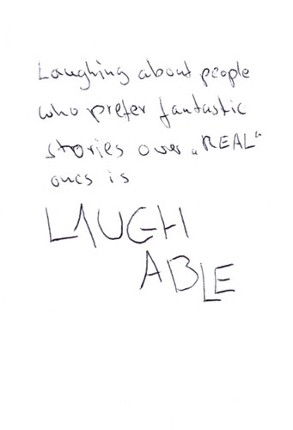 Laughing about people
who prefer fantastic
stories over „REAL“
ones is
LAUGH
ABLE